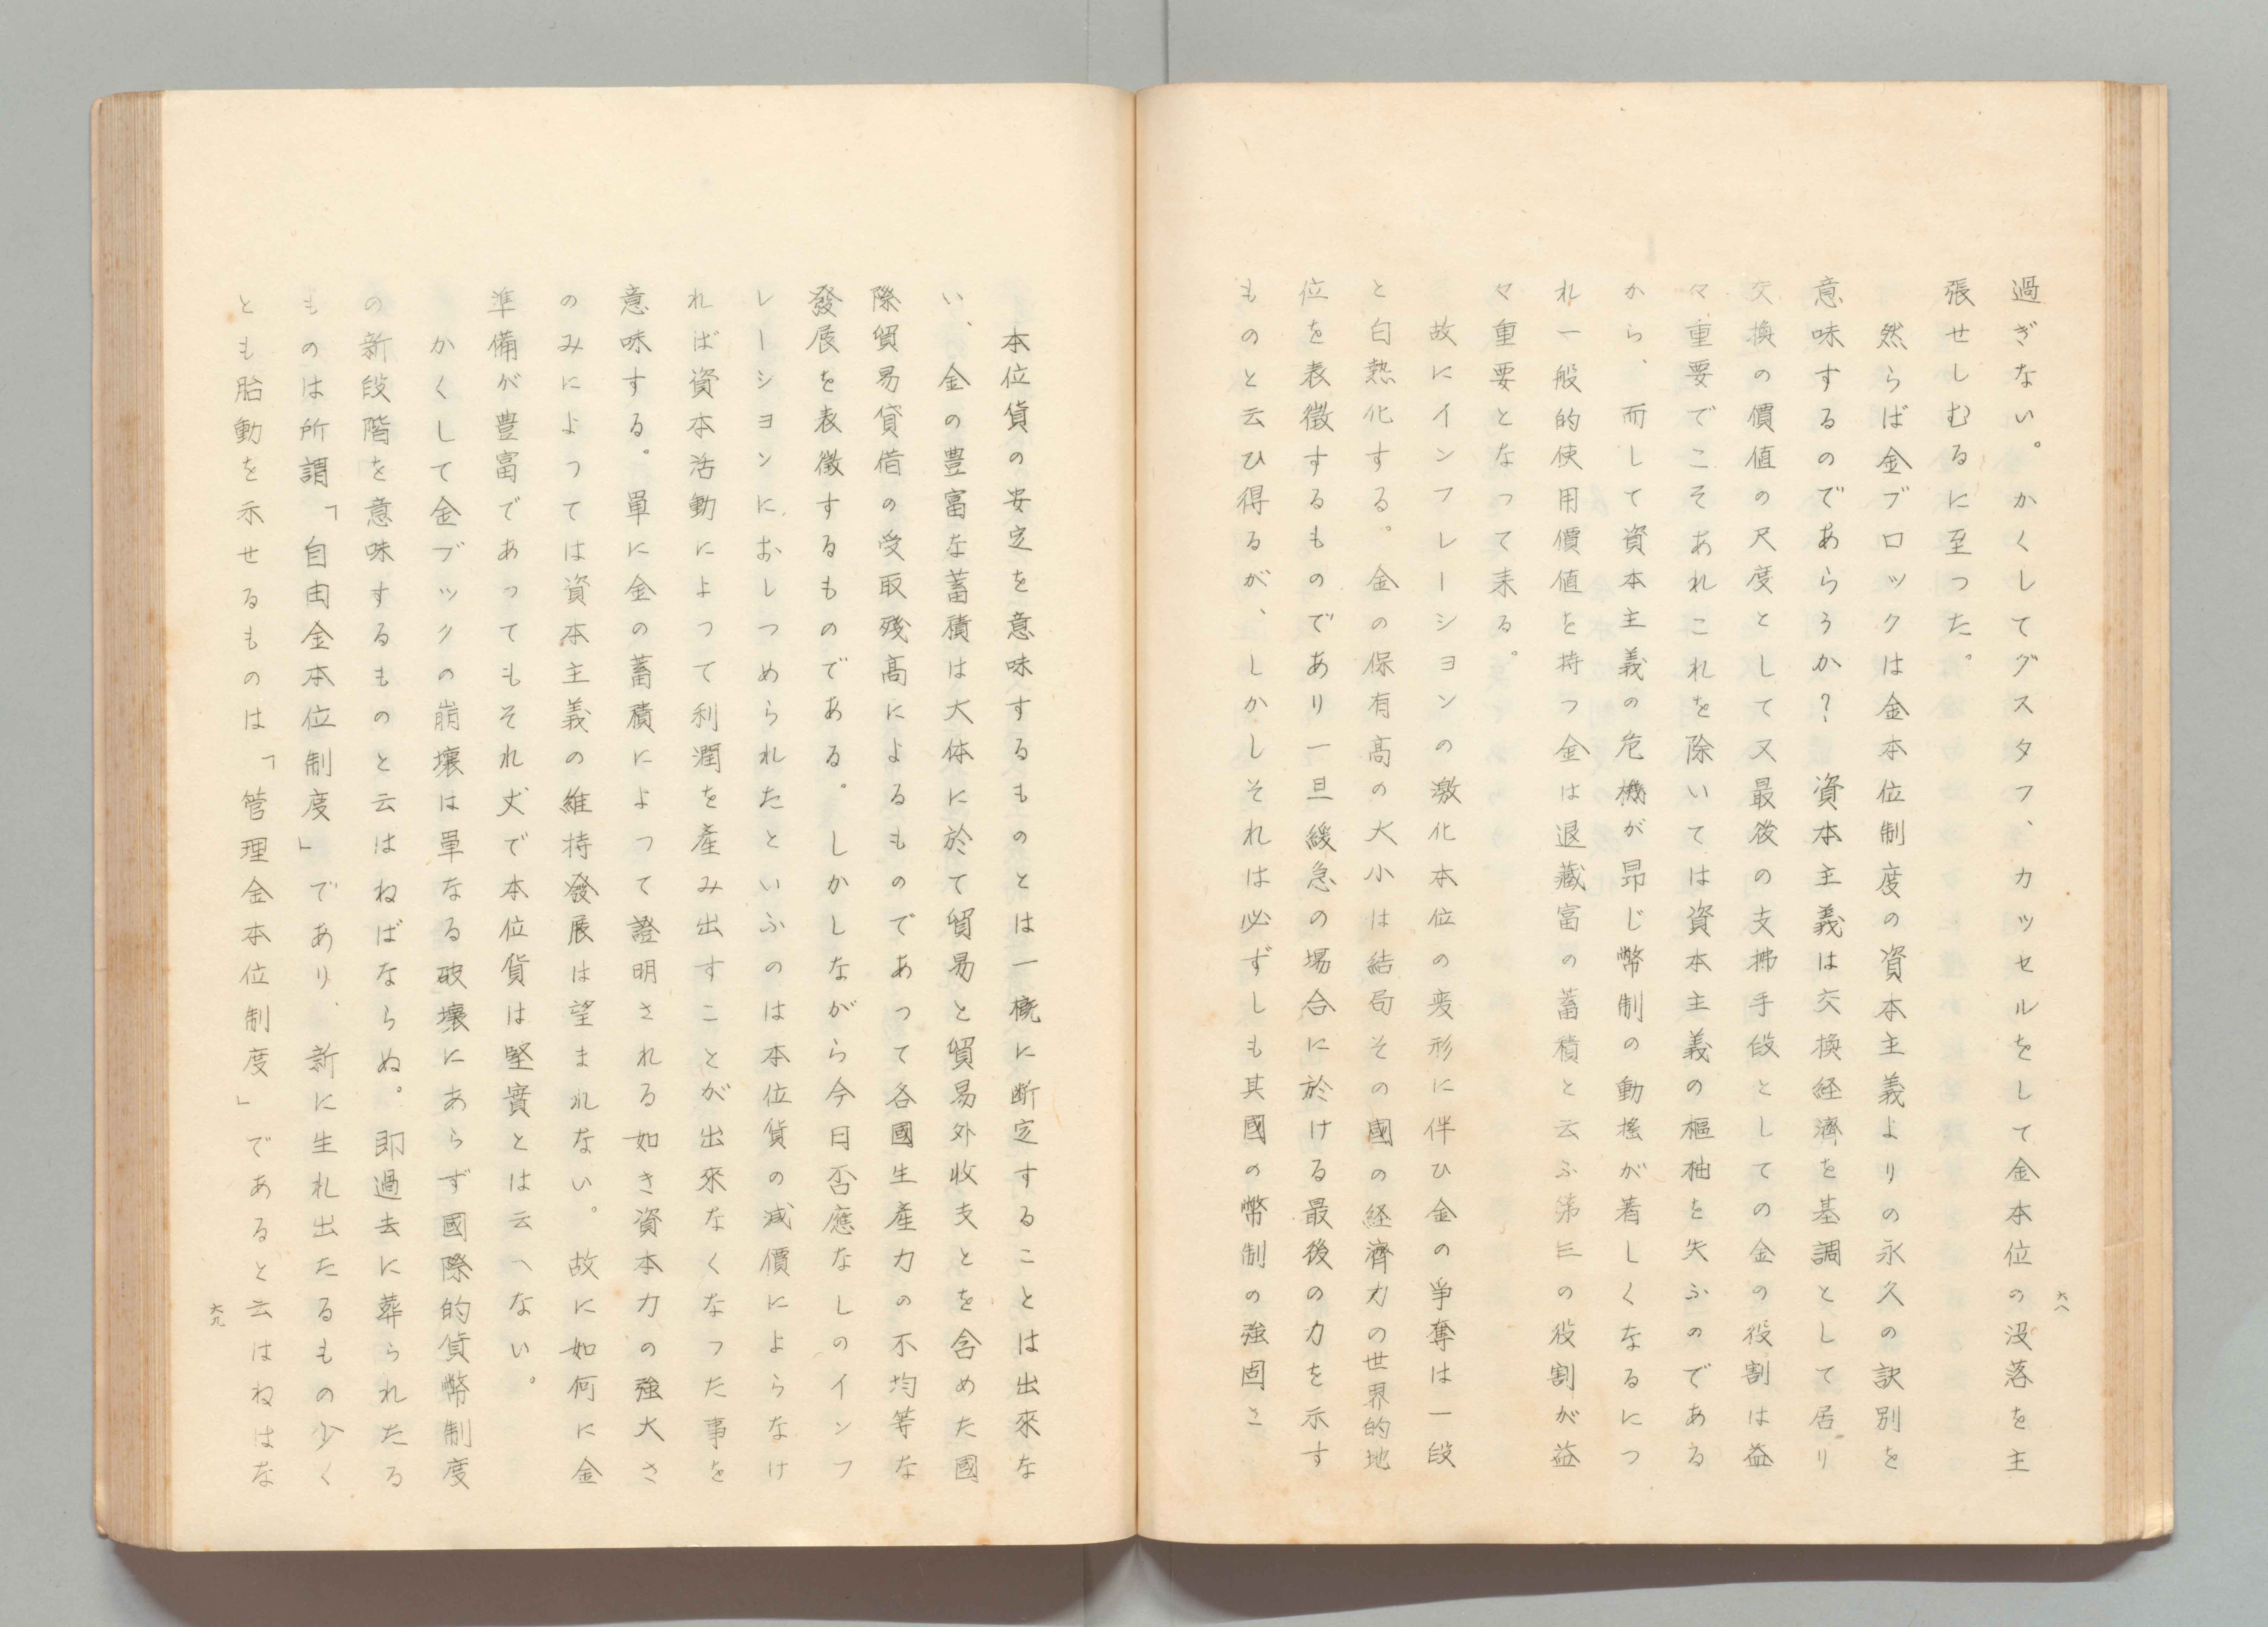 過ぎない。かくしてグスタフ、カッセルをして金本位の没落を主
張せしむるに至った。
然らば金ブロックは金本位制度の資本主義よりの永久の訣別を
意味するのであらうか?　資本主義は交換経濟を基調として居り
交換の價値の尺度として又最後の支拂手段としての金の役割は益
々重要でこそあれこれを除いては資本主義の樞柚を失ふのである
から、而して資本主義の危機が昂じ幣制の動搖が着しくなるにつ
れ一般的使用價値を持つ金は退藏富の蓄積と云ふ第三の役割が益
々重要となって来る。
故にインフレーションの激化本位の変形に伴ひ金の爭奪は一段
と白熱化する。金の保有高の大小は結局その國の経濟力の世界的地
位を表徴するものであり一旦緩急の場合に於ける最後の力を示す
ものと云ひ得るが、しかしそれは必ずしも其國の幣制の強固さ
六八
本位貨の安定を意味するものとは一槪に断定することは出來な
い、金の豊富な蓄積は大体に於て貿易と貿易外收支とを含めた國
際貿易貸借の受取殘高によるものであって各國生產力の不均等な
發展を表徴するものである。しかしながら今日否應なしのインフ
レーションにおしつめられたといふのは本位貨の減價によらなけ
れば資本活動によって利潤を產み出すことが出來なくなった事を
意味する。單に金の蓄積によって證明される如き資本力の強大さ
のみによっては資本主義の維持發展は望まれない。故に如何に金
準備が豊富であってもそれ丈で本位貨は堅實とは云へない。
かくして金ブックの崩壞は單なる破壞にあらず國際的貨幣制度
の新段階を意味するものと云はねばならぬ。即過去に葬られたる
ものは所謂「自由金本位制度」であり、新に生れ出たるもの少く
とも胎動を示せるものは「管理金本位制度」であると云はねはな
六九